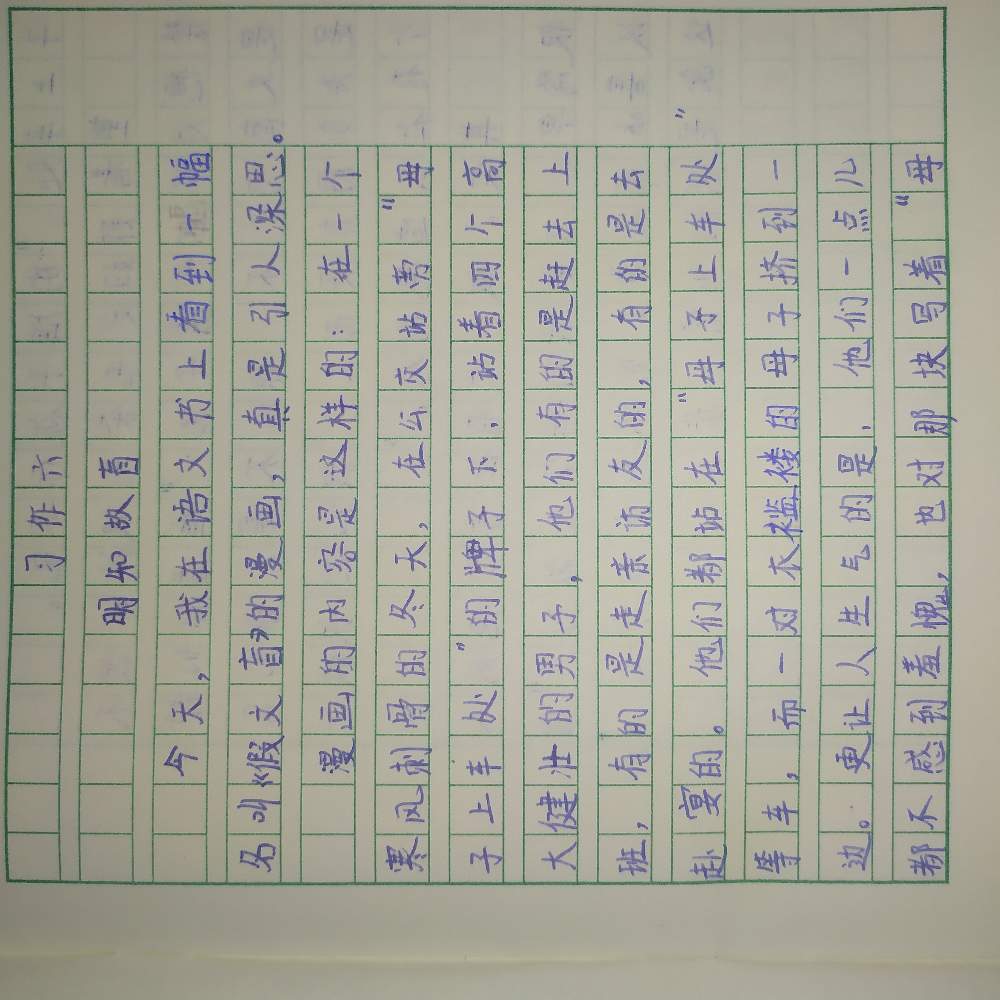 习作六
明知故盲
今天，我在语文书上看到一幅
名叫《假文盲》的漫画，真是引人深思。
漫画的内容是这样的：在一个
寒风刺骨的冬天，在公交站旁“母
子上车处”的牌子下，站着四个高
大健壮的男子，他们有的是赶去上
班，有的是走亲访友的，有的是去
赴宴的。他们都站在“母子上车处”
等车，而一对衣褴褛的母子挤到一
边。更让人生气的是，他们一点儿
都不感到羞愧，也对那块写着“母